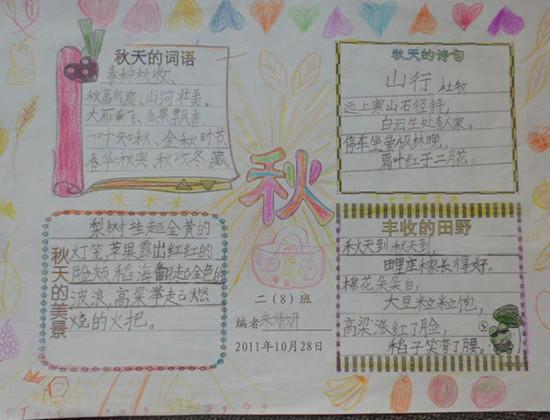 秋天的词语
春种秋收、
秋高气爽、山河壮美、
大雁南飞、瓜果飘香
一叶知秋、金秋时节
春华秋实 秋收冬藏
秋天的诗句
山行 杜牧
远上寒山石径斜,
白云生处有人家。
停车坐爱枫林晚,
霜叶红于二月花。
秋
秋天的美景
梨树挂起金黄的
灯笼,苹果露出红红的
脸颊,稻海翻起金色的
波浪,高粱举起燃
烧的火把。
二(8)班
编者
2011年10月28日
丰收的田野
秋天到,秋天到,
田里庄稼长得好。
棉花朵朵白,
大豆粒粒饱,
高粱涨红了脸,
稻子笑弯了腰。